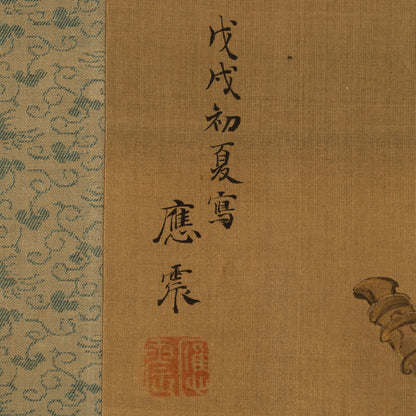 戊戌初夏寫
應震